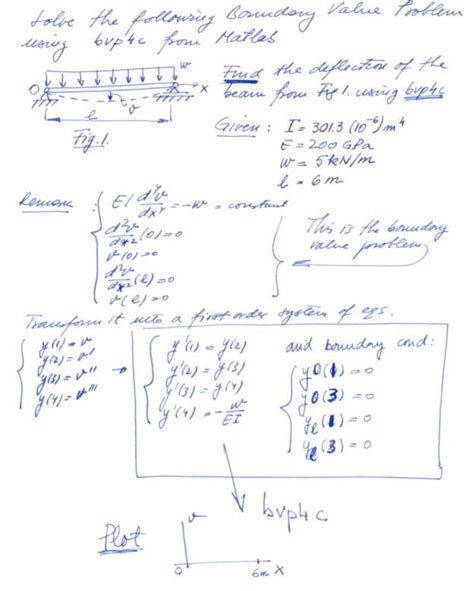 Solve the following Boundary Value Problem
using bvp4c from Matlab
w
O
x
l
v
Fig.1.
Find the deflection of the
beam from Fig 1. using bvp4c
Given: I = 301.3 (10⁻⁶) m⁴
E = 200 GPa
w = 5 kN/m
l = 6 m
EI d⁴v/dx⁴ = -w = constant
d²v/dx² (0) = 0
v(0) = 0
d²v/dx² (l) = 0
v(l) = 0
This is the boundary
value problem
Transform it into a first order system of eqs.
y(1) = v
y(2) = v'
y(3) = v''
y(4) = v'''
y'(1) = y(2)
y'(2) = y(3)
y'(3) = y(4)
y'(4) = -w/EI
and boundary cond:
y0(1) = 0
y0(3) = 0
yl(1) = 0
yl(3) = 0
bvp4c
Plot
v
0
6m x